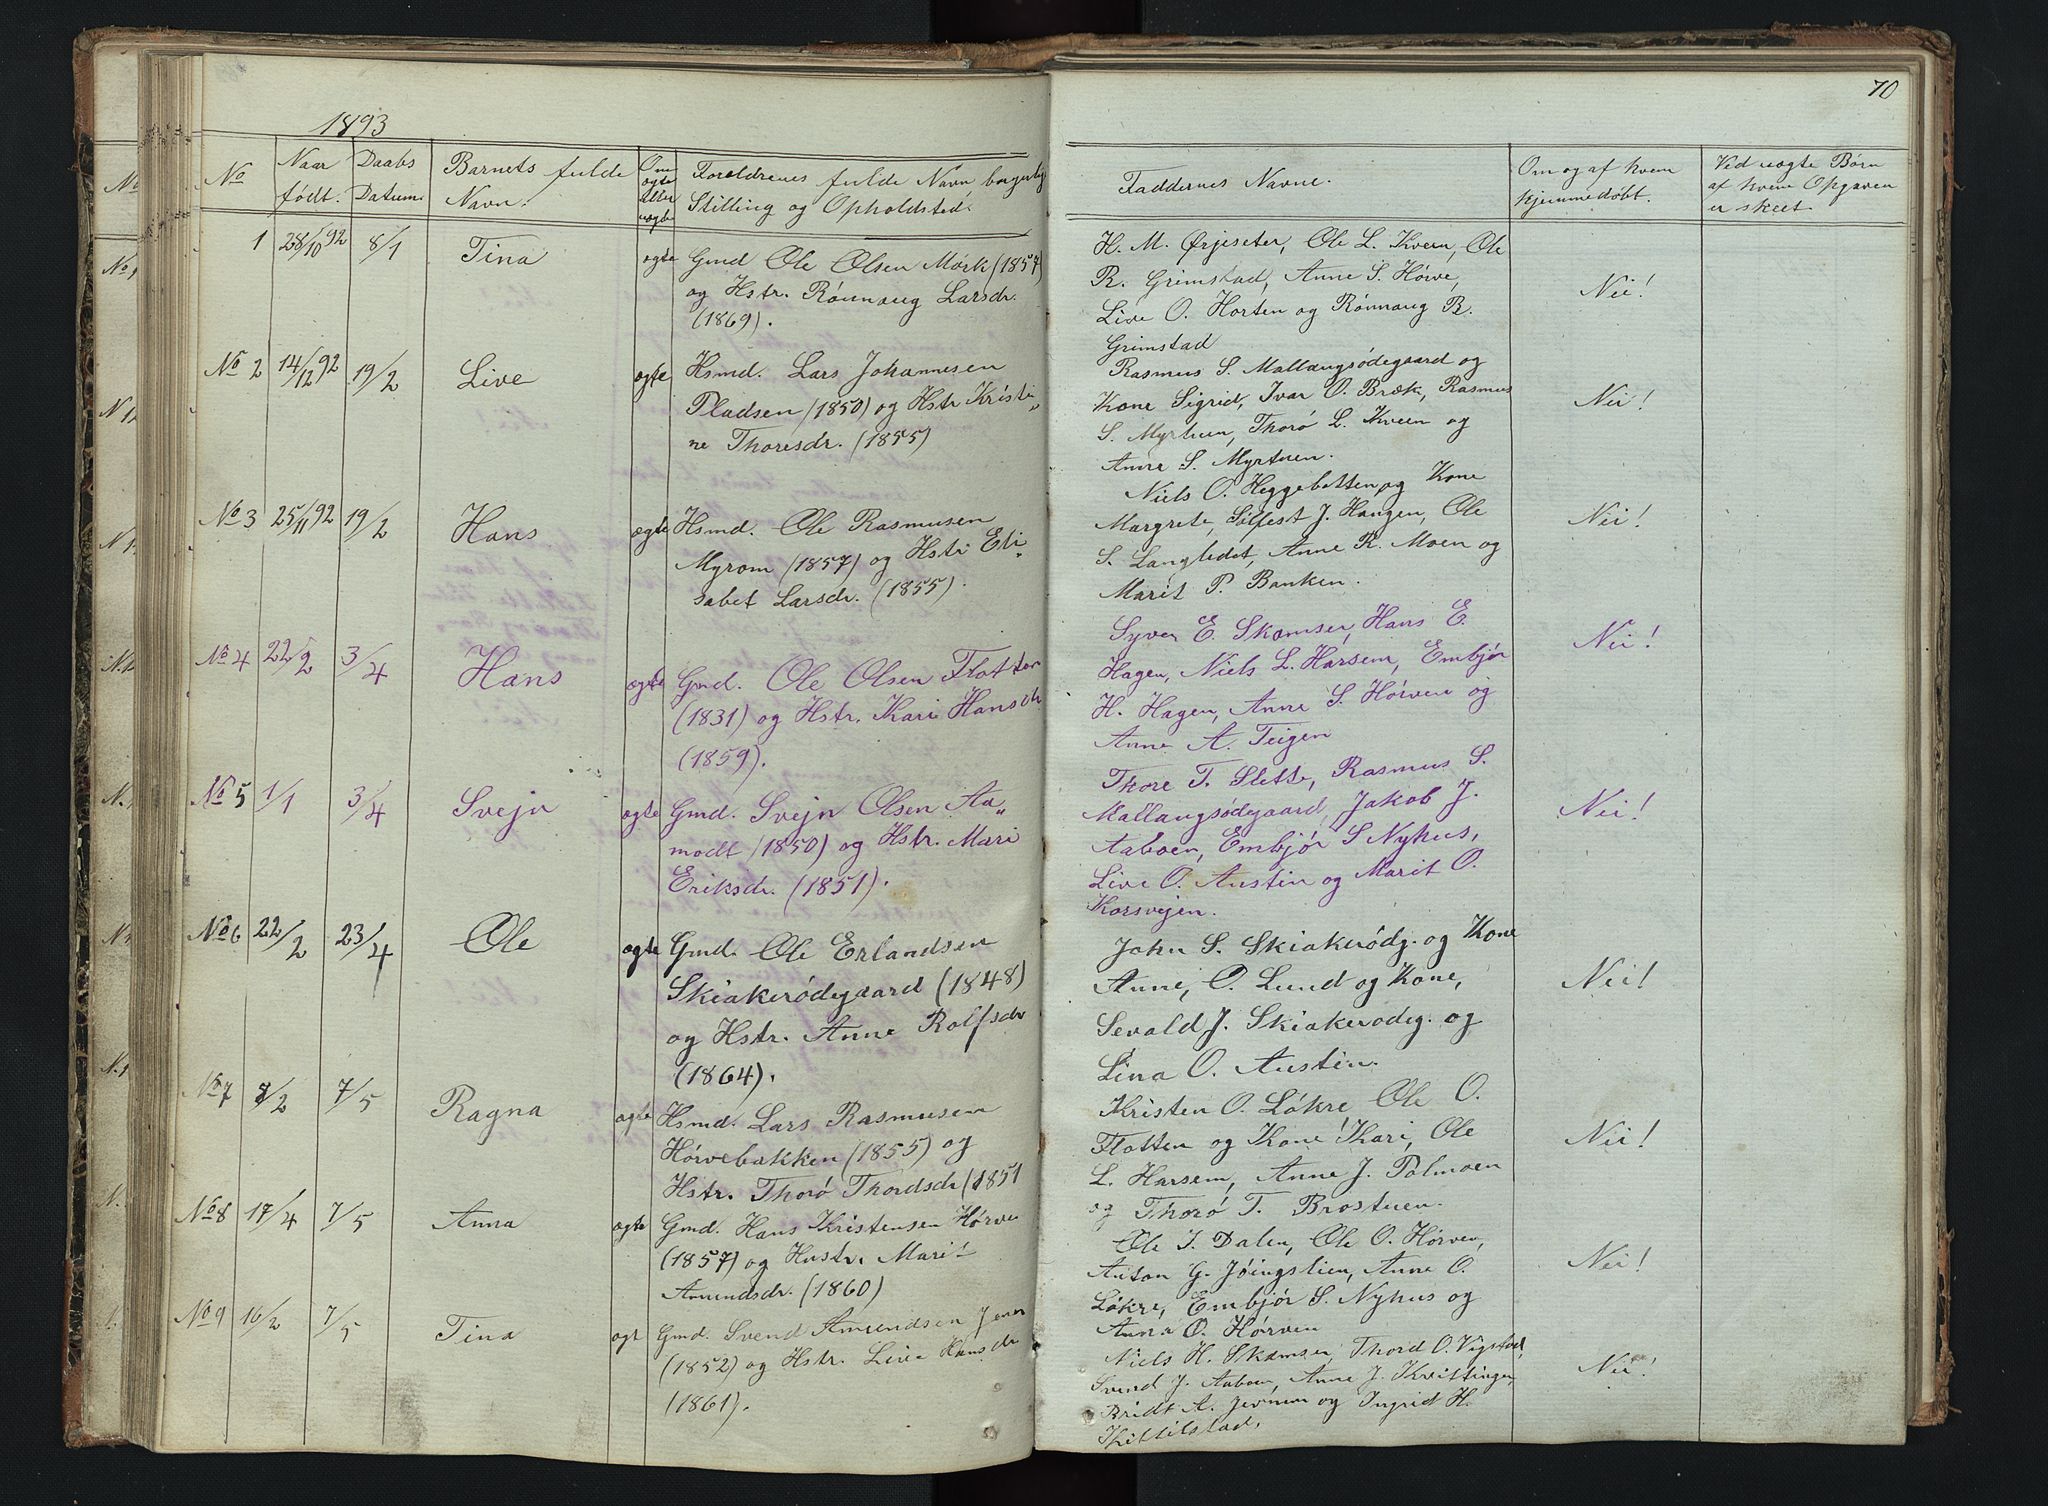 70
1893
No
Naar født.
Daabs Datum.
Barnets fulde Navn.
Om ægte eller uægte
Forældrenes fulde Navn, borgerlig Stilling og Opholdsted.
Faddernes Navne.
Om og af hvem hjemmedøbt.
Ved uægte Børn af hvem Opgaven er skeet.
1 28/10 92 8/1 Tina ægte
Gmd Ole Olsen Mørk (1857)
og Hstr. Rønnaug Larsdr.
(1869).
H. M. Ørjeseter, Ole L. Kveen, Ole
R. Grimstad, Anne S. Hørve,
Live O. Horten og Rønnaug R.
Grimstad
Nei!
No 2 14/12 92 19/2 Live ægte
Hsmd. Lars Johannesen
Pladsen (1850) og Hstr Kristi„
ne Thoresdr. (1855)
Rasmus S. Mallangsødegaard og
Kone Sigrid, Ivar O. Bræk, Rasmus
S. Myrtuen, Thorø L. Kveen og
Anne S. Myrtuen.
Nei!
No 3 25/11 92 19/2 Hans ægte
Hsmd. Ole Rasmusen
Myrom (1857) og Hstr Eli„
sabet Larsdr. (1855).
Niels O. Heggebotten og Kone
Margrete, Sølfest J. Haugen, Ole
S. Langledet, Anne R. Moen og
Marit P. Banken.
Nei!
No 4 22/2 3/4 Hans ægte
Gmd. Ole Olsen Flotten
(1831) og Hstr. Kari Hansdr
(1859).
Syver E. Skamser, Hans E.
Hagen, Niels L. Harsem, Embjør
H. Hagen, Anne S. Hørven og
Anne A. Teigen
Nei!
No 5 1/1 3/4 Svejn ægte
Gmd. Svejn Olsen Aa„
modt (1850) og Hstr. Mari
Eriksdr. (1851).
Thore T. Slette, Rasmus S.
Mallangsødegaard, Jakob J.
Aaboen, Embjør S Nyhus,
Live O. Austin og Marit O.
Korsvejen.
Nei!
No 6 22/2 23/4 Ole ægte
Gmd. Ole Erlandsen
Skiakerødegaard (1848)
og Hstr. Anne Rolfsdr
(1864).
John S. Skiakerødg. og Kone
Anne, O. Lund og Kone,
Sevald J. Skiakerødg. og
Lina O. Austin.
Nei!
No 7 8/2 7/5 Ragna ægte
Hsmd. Lars Rasmusen
Hørvebakken (1855) og
Hstr. Thorø Thordsdr (1851
Kristen O. Løkre, Ole O.
Flotten og Kone Kari, Ole
L. Harsem, Anne J. Polmoen
og Thorø T. Brostuen.
Nei!
No 8 17/4 7/5 Anna ægte
Gmd. Hans Kristensen Hørven
(1857) og Hustr. Marit
Amundsdr. (1860)
Ole J. Dalen, Ole O. Hørven,
Anton G. Jøingslien, Anne O.
Løkre, Embjør S. Nyhus og
Anna O. Hørven
Nei!
No 9 16/2 7/5 Tina ægt
Gmd. Svend Amundsen
(1852) og Hstr. Live Hansdr
(1861).
Niels H. Skamser, Thord O. Vigstad,
Svend J. Aaboen, Anne J. Kvittingen,
Bridt A. Jevnen og Ingrid H.
Kittilstad.
Nei!